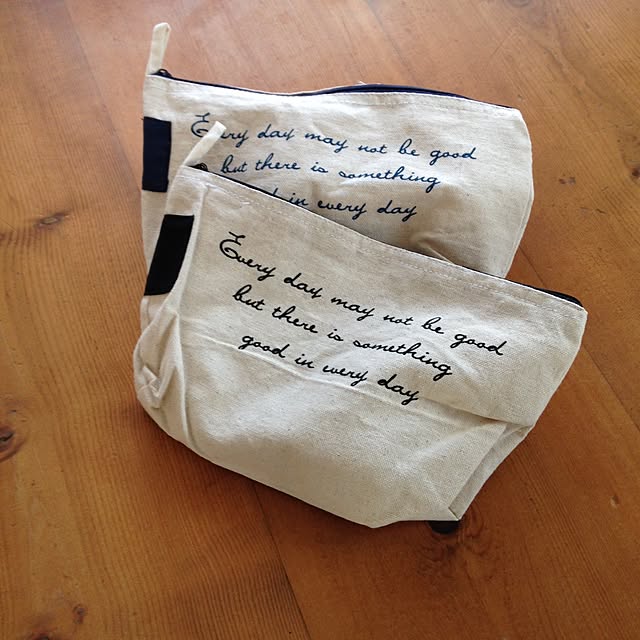 Every day may not be good
but there is something
in every day
Every day may not be good
but there is something
good in every day